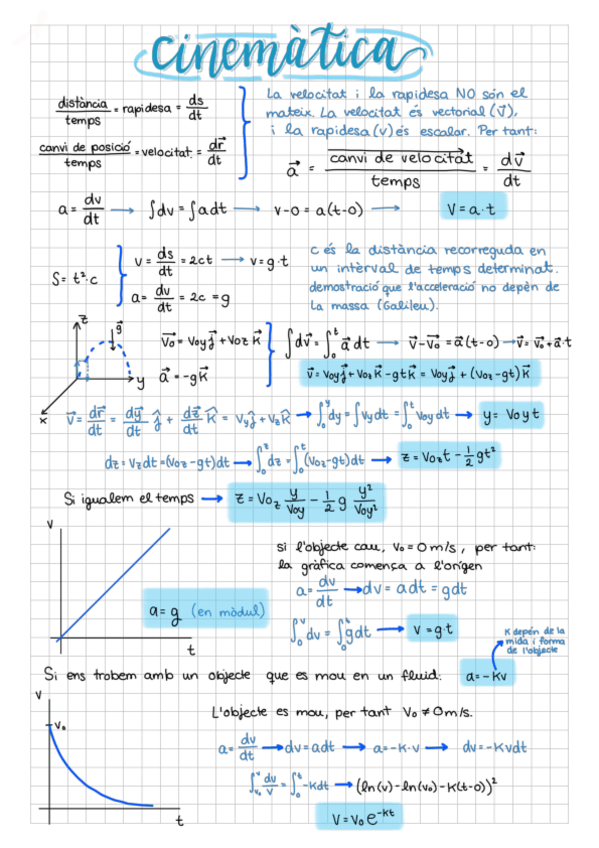 cinemàtica
distància/temps = rapidesa = ds/dt
canvi de posició/temps = velocitat = dr⃗/dt
La velocitat i la rapidesa NO són el
mateix. La velocitat és vectorial (v⃗),
i la rapidesa (v) és escalar. Per tant:
a⃗ = canvi de velocitat/temps = dv⃗/dt
a = dv/dt → ∫dv = ∫adt → v-0 = a(t-0) → V = a·t
S = t²·c
v = ds/dt = 2ct → v = g·t
a = dv/dt = 2c = g
c és la distància recorreguda en
un intèrval de temps determinat.
demostració que l'acceleració no depèn de
la massa (Galileu).
z
g⃗
y
x
v₀⃗ = Voy j⃗ + Voz k⃗
a⃗ = -g k⃗
∫dv⃗ = ∫₀ᵗ a⃗ dt → v⃗ - v₀⃗ = a⃗(t-0) → v⃗ = v₀⃗ + a⃗·t
v⃗ = Voy j⃗ + Voz k⃗ - gt k⃗ = Voy j⃗ + (Voz - gt) k⃗
v⃗ = dr⃗/dt = dy⃗/dt ĵ + dz⃗/dt k̂ = Vy ĵ + Vz k̂ → ∫₀ʸ dy = ∫Vy dt = ∫₀ᵗ Voy dt → y = Voy t
dz = Vz dt = (Voz - gt)dt → ∫₀ᶻ dz = ∫₀ᵗ (Voz - gt)dt → z = Voz t - 1/2 gt²
Si igualem el temps → z = Voz y/Voy - 1/2 g y²/Voy²
v
t
a = g (en mòdul)
si l'objecte cau, V₀ = 0 m/s, per tant:
la gràfica comença a l'orígen
a = dv/dt → dv = adt = gdt
∫₀ᵛ dv = ∫₀ᵗ gdt → v = g·t
K depén de la
mida i forma
de l'objecte
Si ens trobem amb un objecte que es mou en un fluid: a = -Kv
v
V₀
t
L'objecte es mou, per tant V₀ ≠ 0 m/s.
a = dv/dt → dv = adt → a = -K·v → dv = -Kvdt
∫ᵥ₀ᵛ dv/v = ∫₀ᵗ -Kdt → (ln(v) - ln(v₀) - K(t-0))²
V = V₀ e^-kt